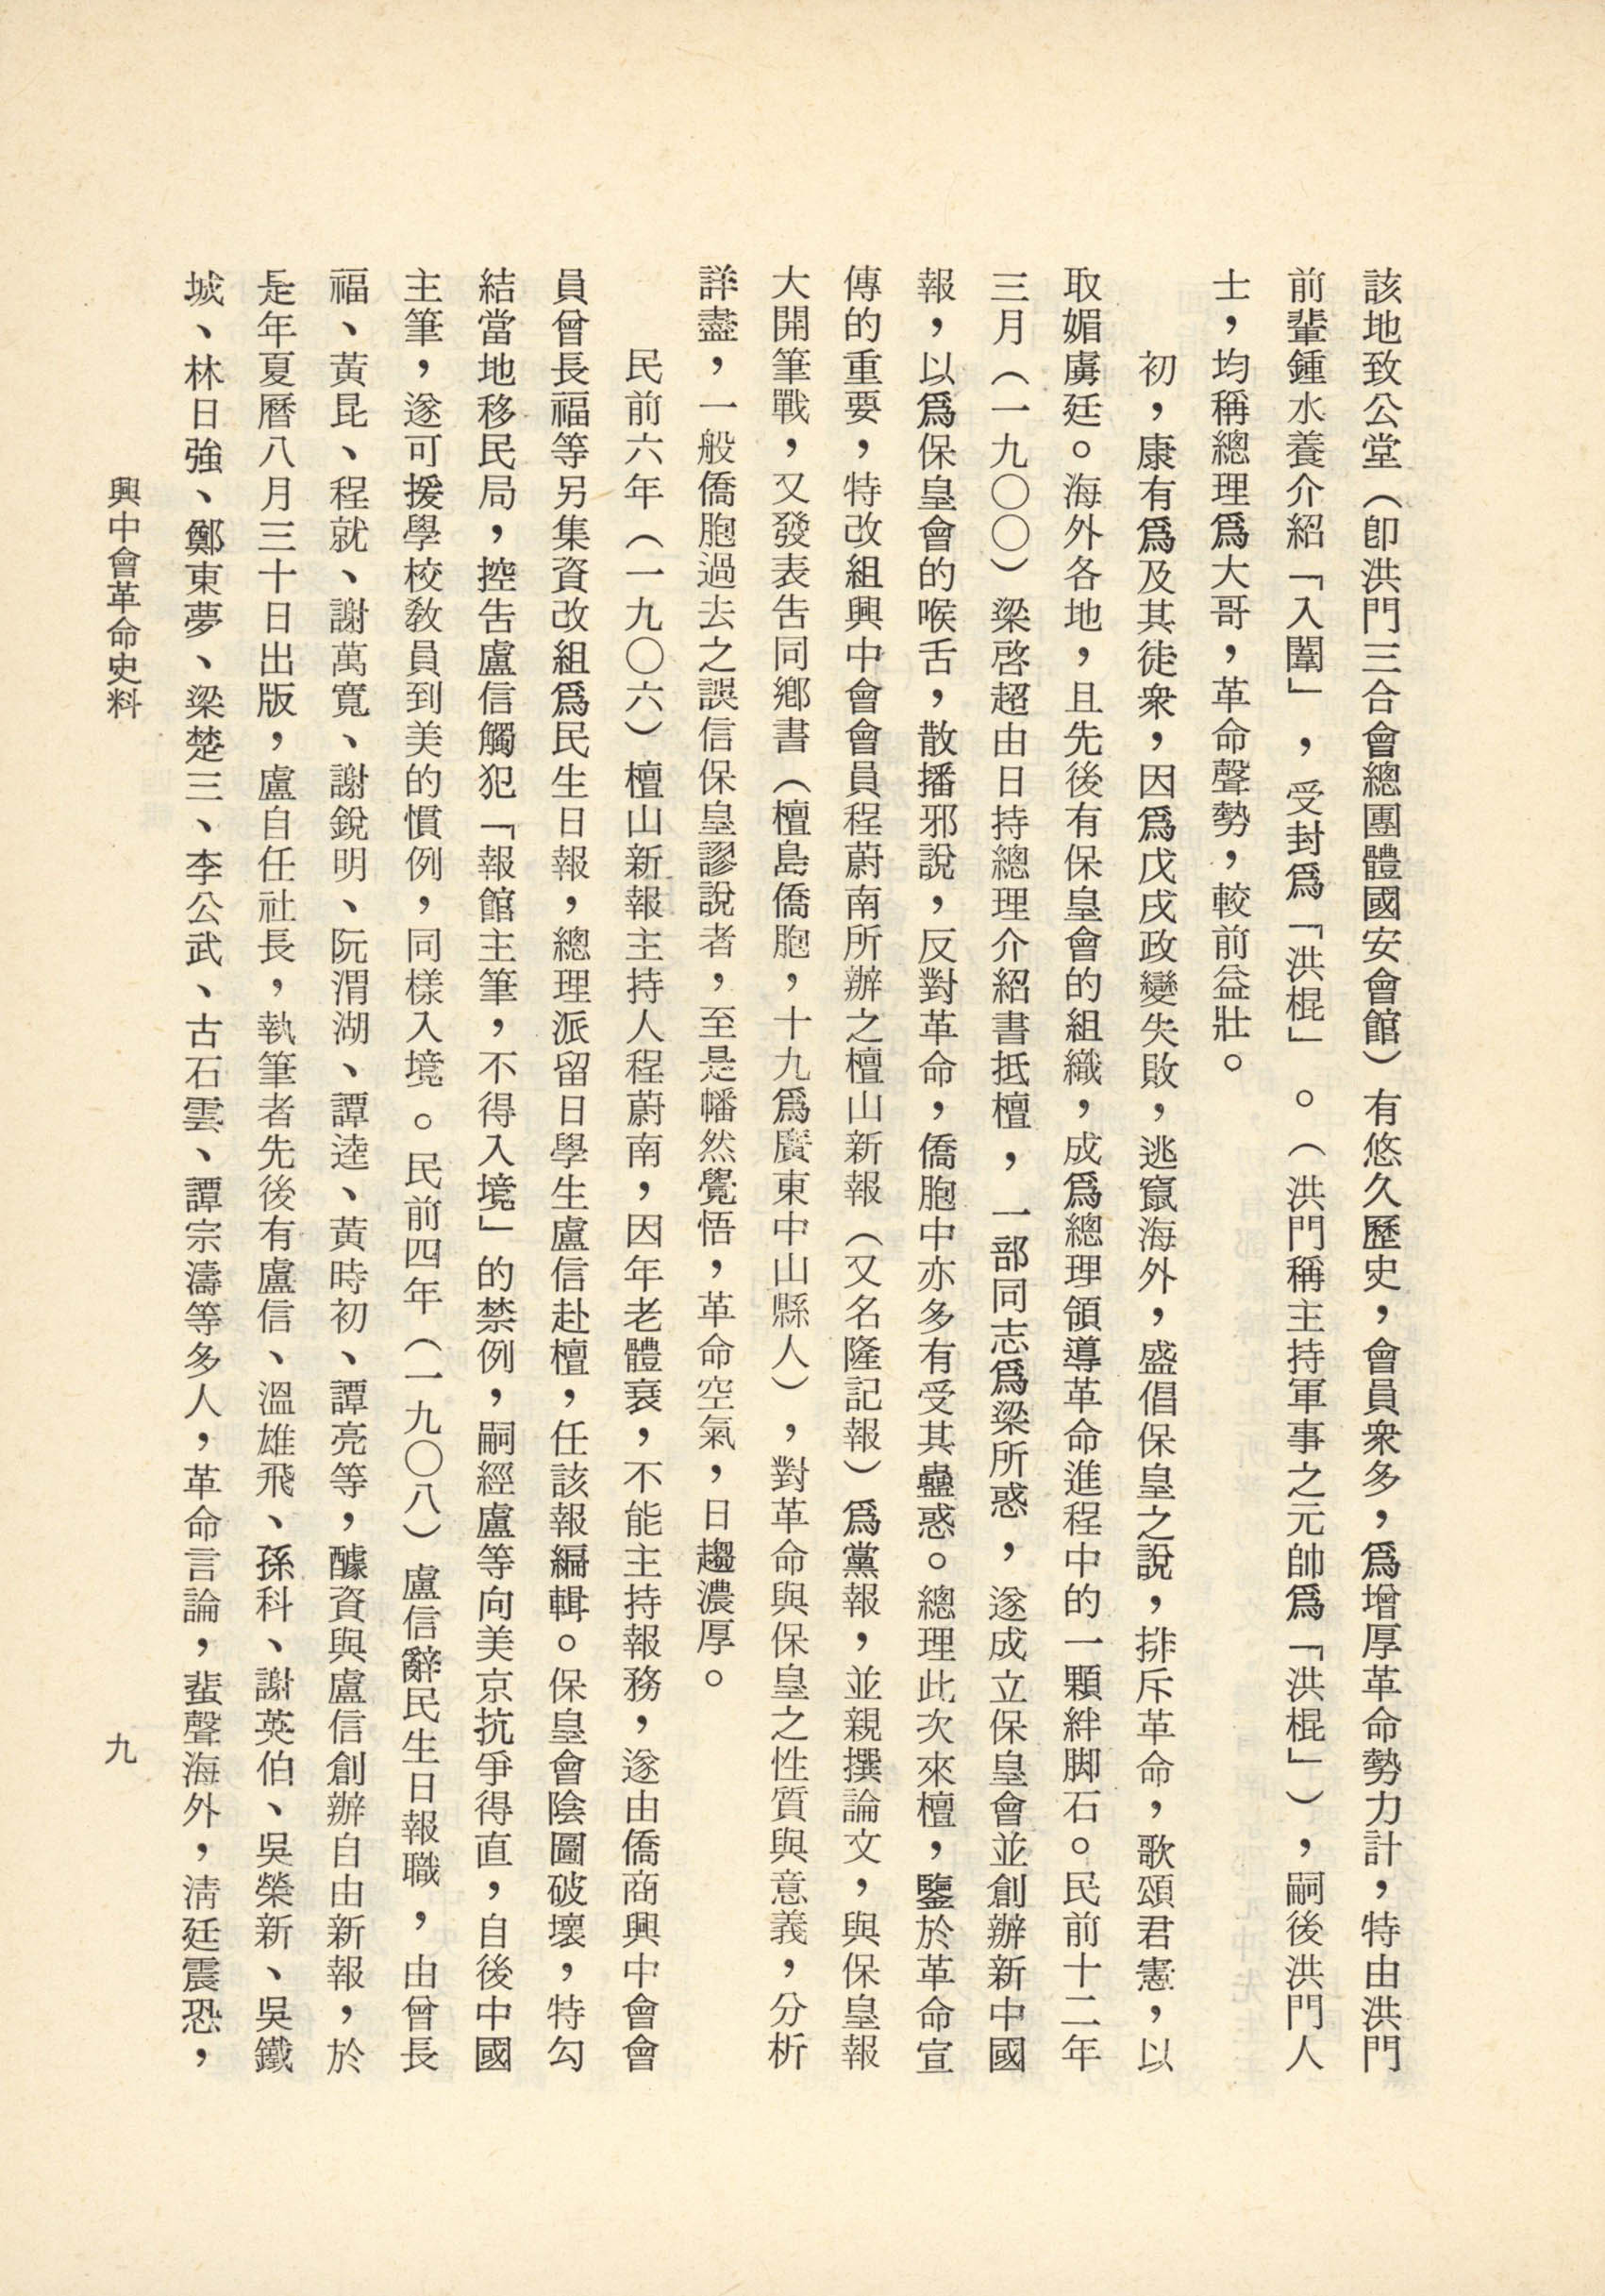 該地致公堂（卽洪門三合會總團體國安會館）有悠久歷史，會員衆多，爲增厚革命勢力計，特由洪門
前輩鍾水養介紹「入闈」，受封爲「洪棍」。（洪門稱主持軍事之元帥爲「洪棍」），嗣後洪門人
士，均稱總理爲大哥，革命聲勢，較前益壯。
初，康有爲及其徒衆，因爲戊戌政變失敗，逃竄海外，盛倡保皇之說，排斥革命，歌頌君憲，以
取媚虜廷。海外各地，且先後有保皇會的組織，成爲總理領導革命進程中的一顆絆脚石。民前十二年
三月（一九〇〇）梁啓超由日持總理介紹書抵檀，一部同志爲梁所惑，遂成立保皇會並創辦新中國
報，以爲保皇會的喉舌，散播邪說，反對革命，僑胞中亦多有受其蠱惑。總理此次來檀，鑒於革命宣
傳的重要，特改組興中會會員程蔚南所辦之檀山新報（又名隆記報）爲黨報，並親撰論文，與保皇報
大開筆戰，又發表告同鄕書（檀島僑胞，十九爲廣東中山縣人），對革命與保皇之性質與意義，分析
詳盡，一般僑胞過去之誤信保皇謬說者，至是幡然覺悟，革命空氣，日趨濃厚。
民前六年（一九〇六）檀山新報主持人程蔚南，因年老體衰，不能主持報務，遂由僑商興中會會
員曾長福等另集資改組爲民生日報，總理派留日學生盧信赴檀，任該報編輯。保皇會陰圖破壞，特勾
結當地移民局，控告盧信觸犯「報館主筆，不得入境」的禁例，嗣經盧等向美京抗爭得直，自後中國
主筆，遂可援學校敎員到美的慣例，同樣入境。民前四年（一九〇八）盧信辭民生日報職，由曾長
福、黃昆、程就、謝萬寬、謝銳明、阮渭湖、譚逵、黃時初、譚亮等，醵資與盧信創辦自由新報，於
是年夏曆八月三十日出版，盧自任社長，執筆者先後有盧信、溫雄飛、孫科、謝英伯、吳榮新、吳鐵
城、林日強、鄭東夢、梁楚三、李公武、古石雲、譚宗濤等多人，革命言論，蜚聲海外，淸廷震恐，
興中會革命史料
九